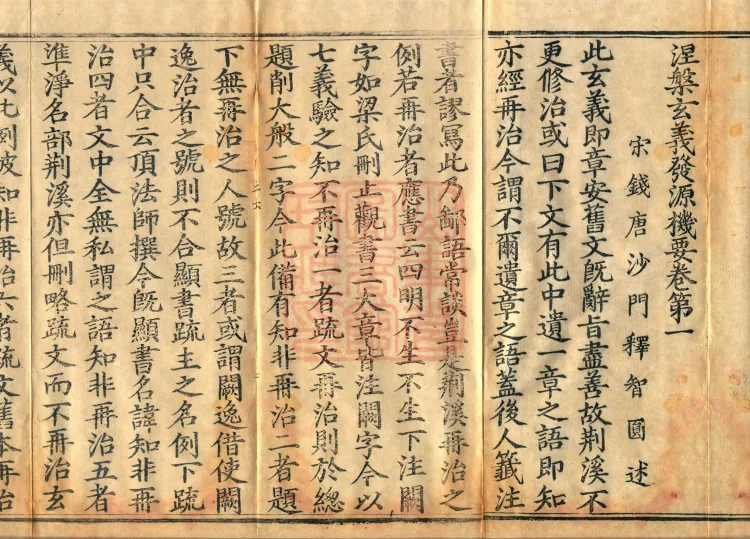 涅槃玄義發源機要卷第一
宋錢唐沙門釋智圓述
此玄義即章安舊文既辭旨盡善故荆溪不
更修治或曰下文有此中遺一章之語即知
亦經再治今謂不爾遺章之語蓋後人籤注
書者謬寫此乃鄙語常談豈是荆溪再治之
例若再治者應書云四明不生不生下注闕
字如梁氏刪止觀書三大章皆注闕字今以
七義驗之知不再治一者疏文再治則於總
題削大般二字今此備有知非再治二者題
下無再治之人號故三者或謂闕逸借使闕
逸治者之號則不合顯書疏主之名例下疏
中只合云頂法師撰今既顯書名諱知非再
治四者文中全無私謂之語知非再治五者
準淨名部荆溪亦但刪略疏文而不再治玄
義以此例彼知非再治六者疏文舊本再治